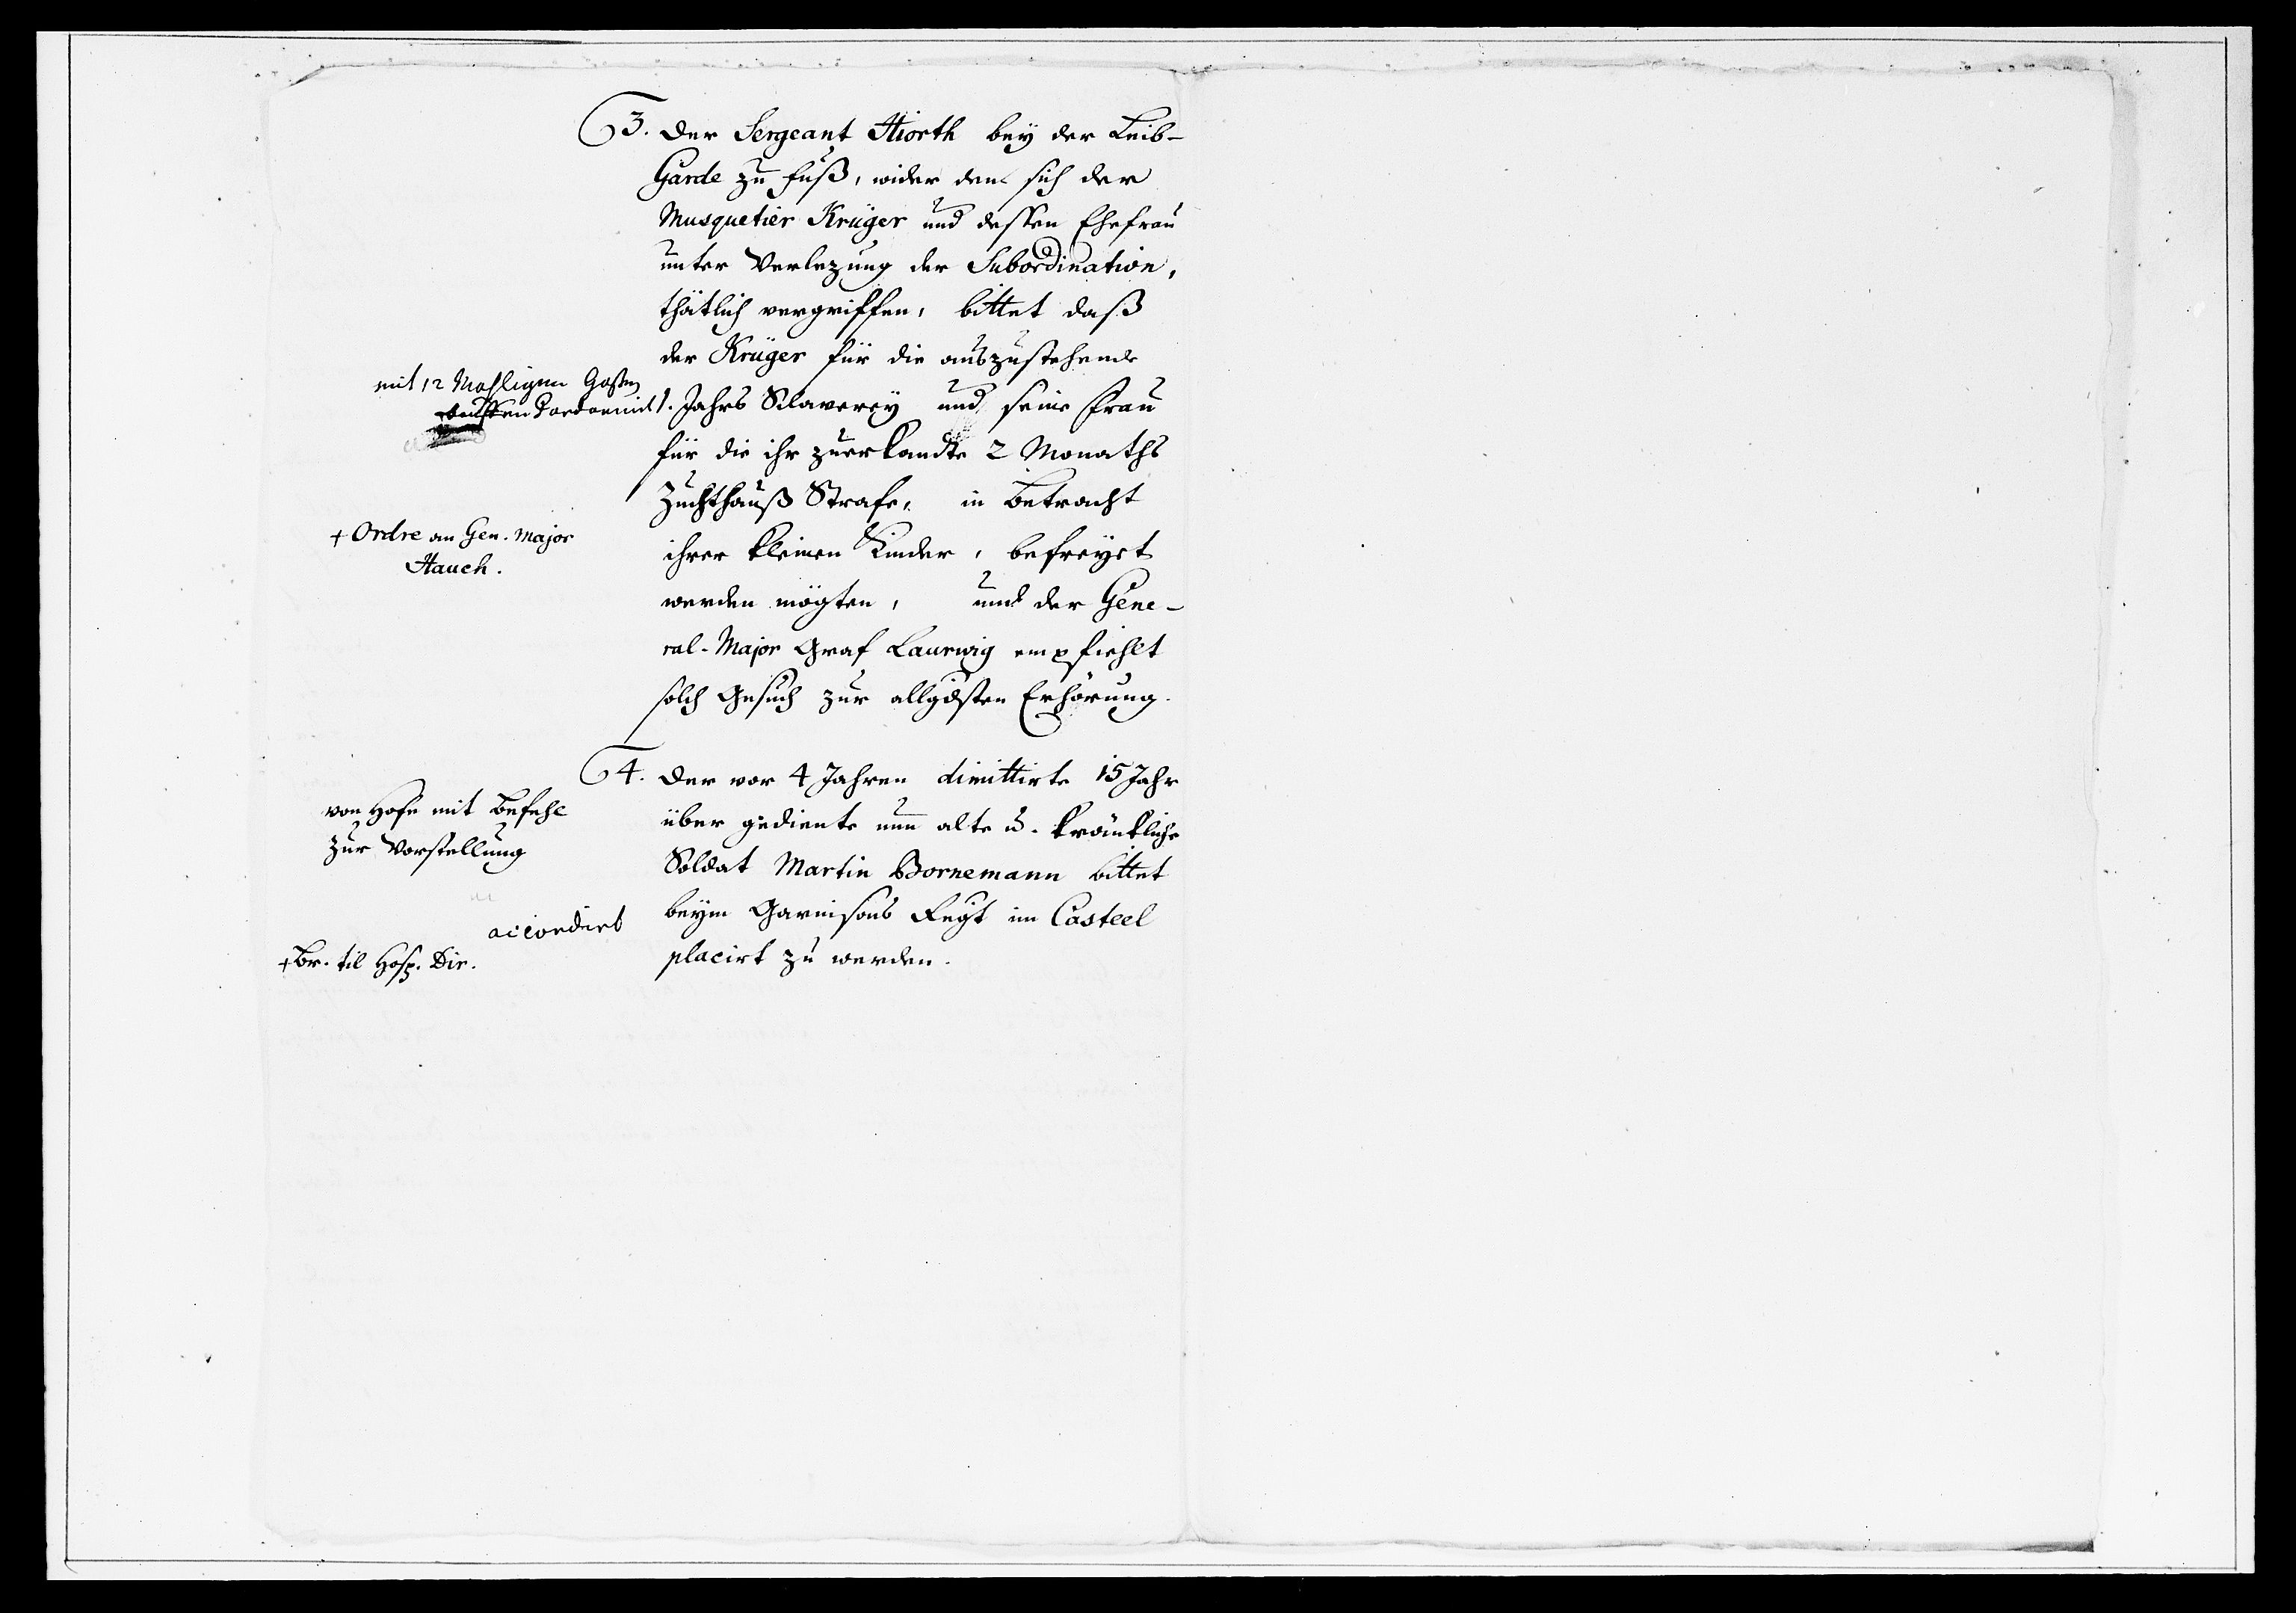 3. Der Sergeant Hiorth bey der Leib-
Garde zu Fuß, wider den sich der
Musquetier Krüger und dessen Ehefrau
unter Verlezung der Subordination,
thätlich vergriffen, bittet daß
der Krüger für die auszustehende
1. Jahrs Sclaverey und seine Frau
für die ihr zuerkandte 2 Monaths
Zuchthauß Strafe, in Betracht
ihrer kleinen Kinder, befreyet
werden mögten, und der Gene-
ral-Major Graf Laurwig empfiehlt
solch Gesuch zur allgdsten Erhörung.
mit 12 Mahligen Gaßen
+ Ordre an Gen. Major
Hauch.
4. Der vor 4 Jahren dimittirte 15 Jahr
über gediente nun alte u. kränkliche
Soldat Martin Bornemann bittet
beym Garnisons Regt im Casteel
placirt zu werden.
von Hofe mit Befehl
zur Vorstellung
accordirt
+ Br. til Hosp. Dir.